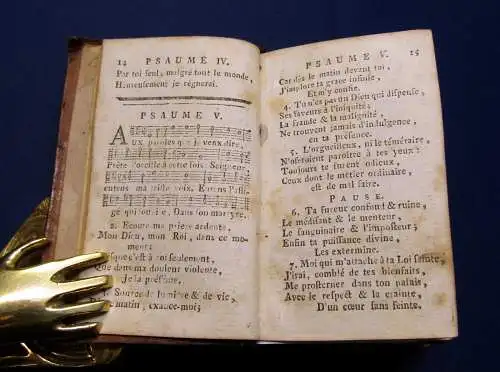 14 PSAUME IV.
Par toi seul, malgré tout le monde,
Heureusement je régnerai.
PSAUME V.
AUX paroles que je veux dire,
Prête l'oreille à cette fois Seigneur,
entens ma triste voix. Et
gé qui ou-i-e, Dans son mar-tyre.
2. Ecoute ma priere ardente,
Mon Dieu, mon Roi, dans ce moment:
Puisque c'est à toi seulement,
Que dans ma douleur violente,
Je la présente.
Source de lumiere & de vie,
matin, exauce-moi;
PSAUME V. 15
Car dès le matin devant toi,
J'implore ta grace infinie,
Et m'y confie.
4. Tu n'es pas un Dieu qui dispense,
Ses faveurs à l'iniquité;
La fraude & la malignité,
Ne trouvent jamais d'indulgence,
en ta présence.
5. L'orgueilleux, ni le téméraire,
N'oseroient paroître à tes yeux:
Toujours te furent odieux,
Ceux dont le métier ordinaire,
est de mal faire.
PAUSE.
6. Ta fureur confond & ruine,
Le médisant & le menteur,
Le sanguinaire & l'imposteur;
Enfin ta puissance divine,
Les extermine.
7. Moi qui m'attache à ta Loi sainte,
J'irai, comblé de tes bienfaits,
Me prosterner dans ton palais,
Avec le respect & la crainte,
D'un cœur sans feinte.